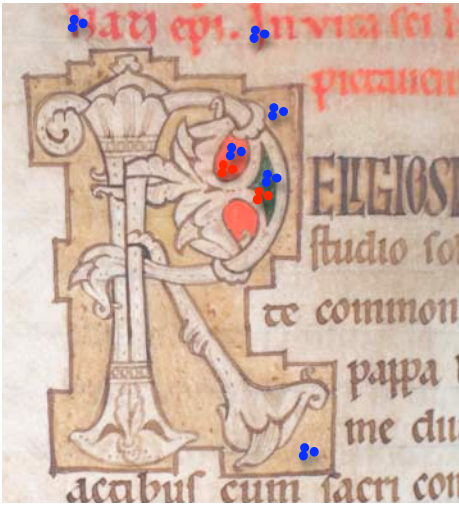 nati epi. In vita sci h
pictauen
RELIGIOSI
studio sol
te common
pappa
me diu
actibus cum sacri con